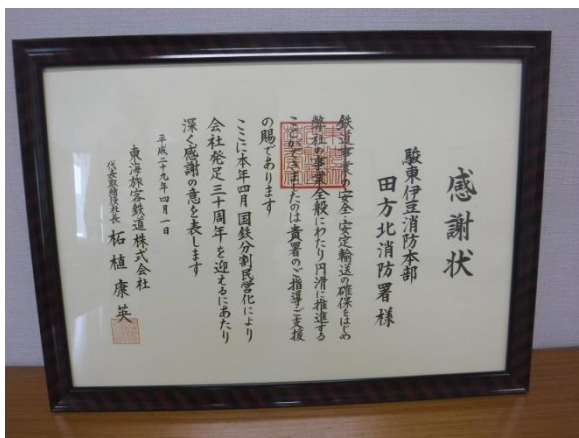 感謝状
駿東伊豆消防本部
田方北消防署様
鉄道事業の安全・安定輸送の確保をはじめ
弊社の事業全般にわたり円滑に推進する
ことができましたのは貴署のご指導ご支援
の賜であります
ここに本年四月国鉄分割民営化により
会社発足三十周年を迎えるにあたり
深く感謝の意を表します
平成二十九年四月一日
東海旅客鉄道株式会社
代表取締役社長 柘植康英